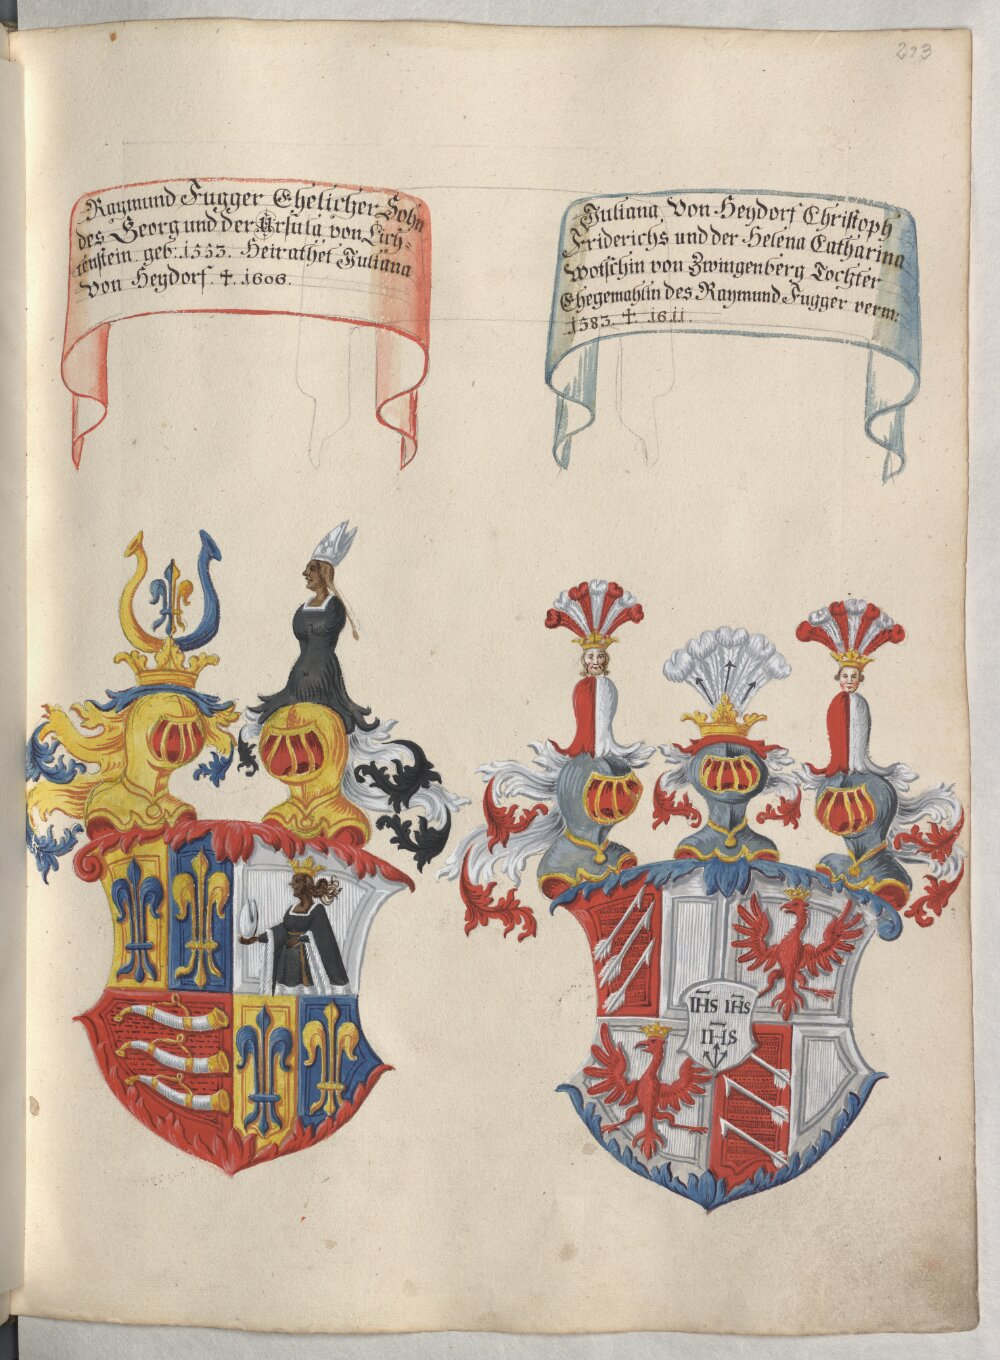 293
Raymund Fugger Ehelicher Sohn
des Georg und der Ursula von Lich-
tenstein geb: 1553. Heirathet Juliana
von Heydorf. ✝. 1606.
Juliana, Von Heydorf Christoph
Friderichs und der Helena Catharina
Wotschin von Zwingenberg Tochter
Ehegemahlin des Raymund Fugger verm:
1583. ✝ 1611.
IHS IHS
IHS